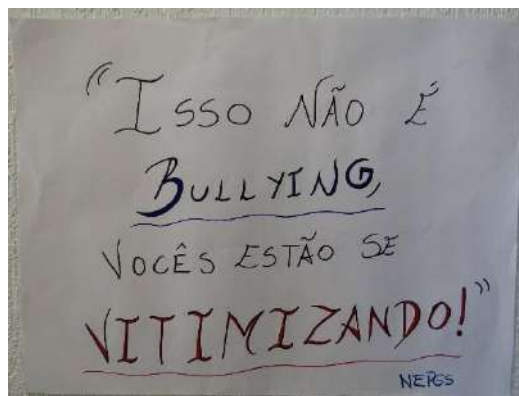 "ISSO NÃO É
BULLYING,
VOCÊS ESTÃO SE
VITIMIZANDO!"
NEPGS